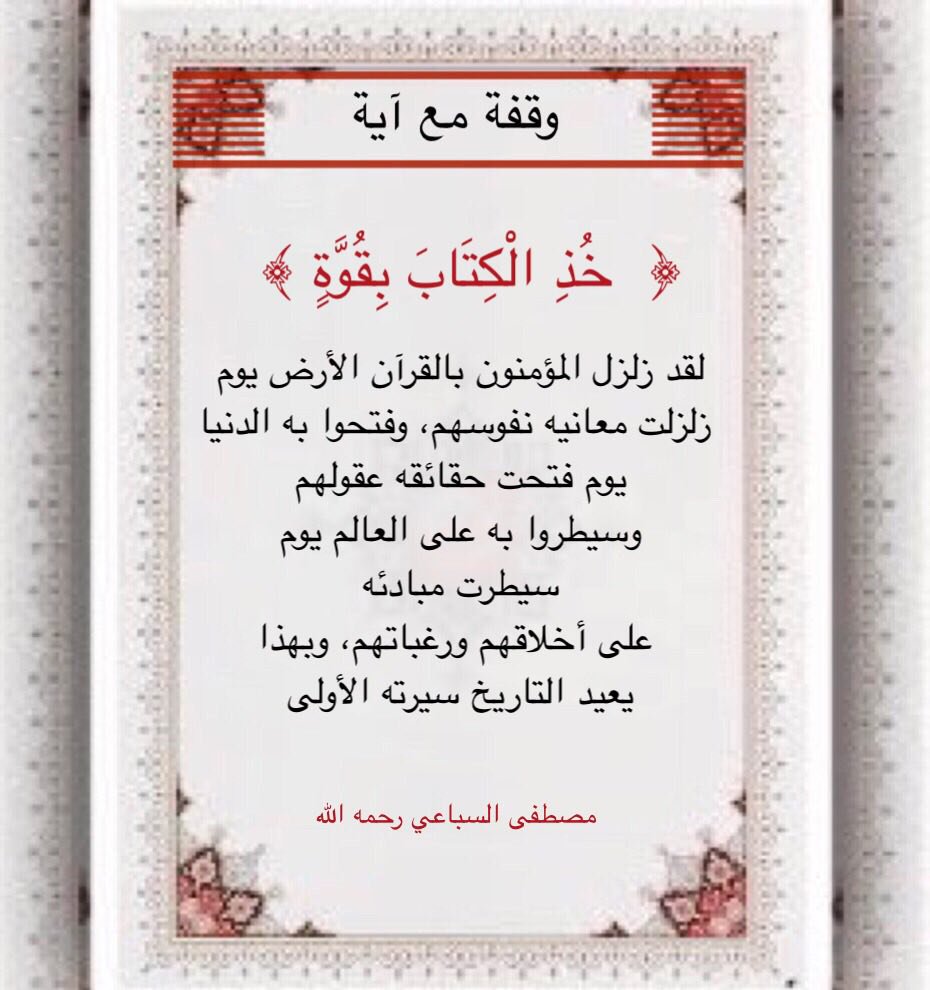 وقفة مع آية
﴿ خُذِ الْكِتَابَ بِقُوَّةٍ ﴾
لقد زلزل المؤمنون بالقرآن الأرض يوم
زلزلت معانيه نفوسهم، وفتحوا به الدنيا
يوم فتحت حقائقه عقولهم
وسيطروا به على العالم يوم
سيطرت مبادئه
على أخلاقهم ورغباتهم، وبهذا
يعيد التاريخ سيرته الأولى
مصطفى السباعي رحمه الله